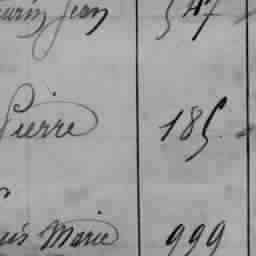 Jean 547
Pierre 185
Marie 999